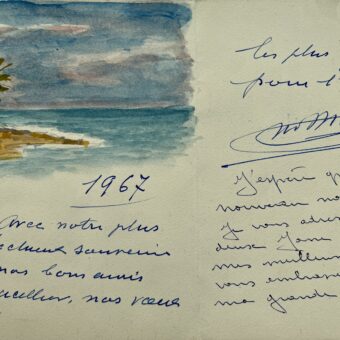 1967
Avec notre plus
souvenir
nos bons amis
nos vœux
les plus
pour l'
J'espère que
nouveau no
Je vous adres
deux
mes meilleur
vous embras
ma grande